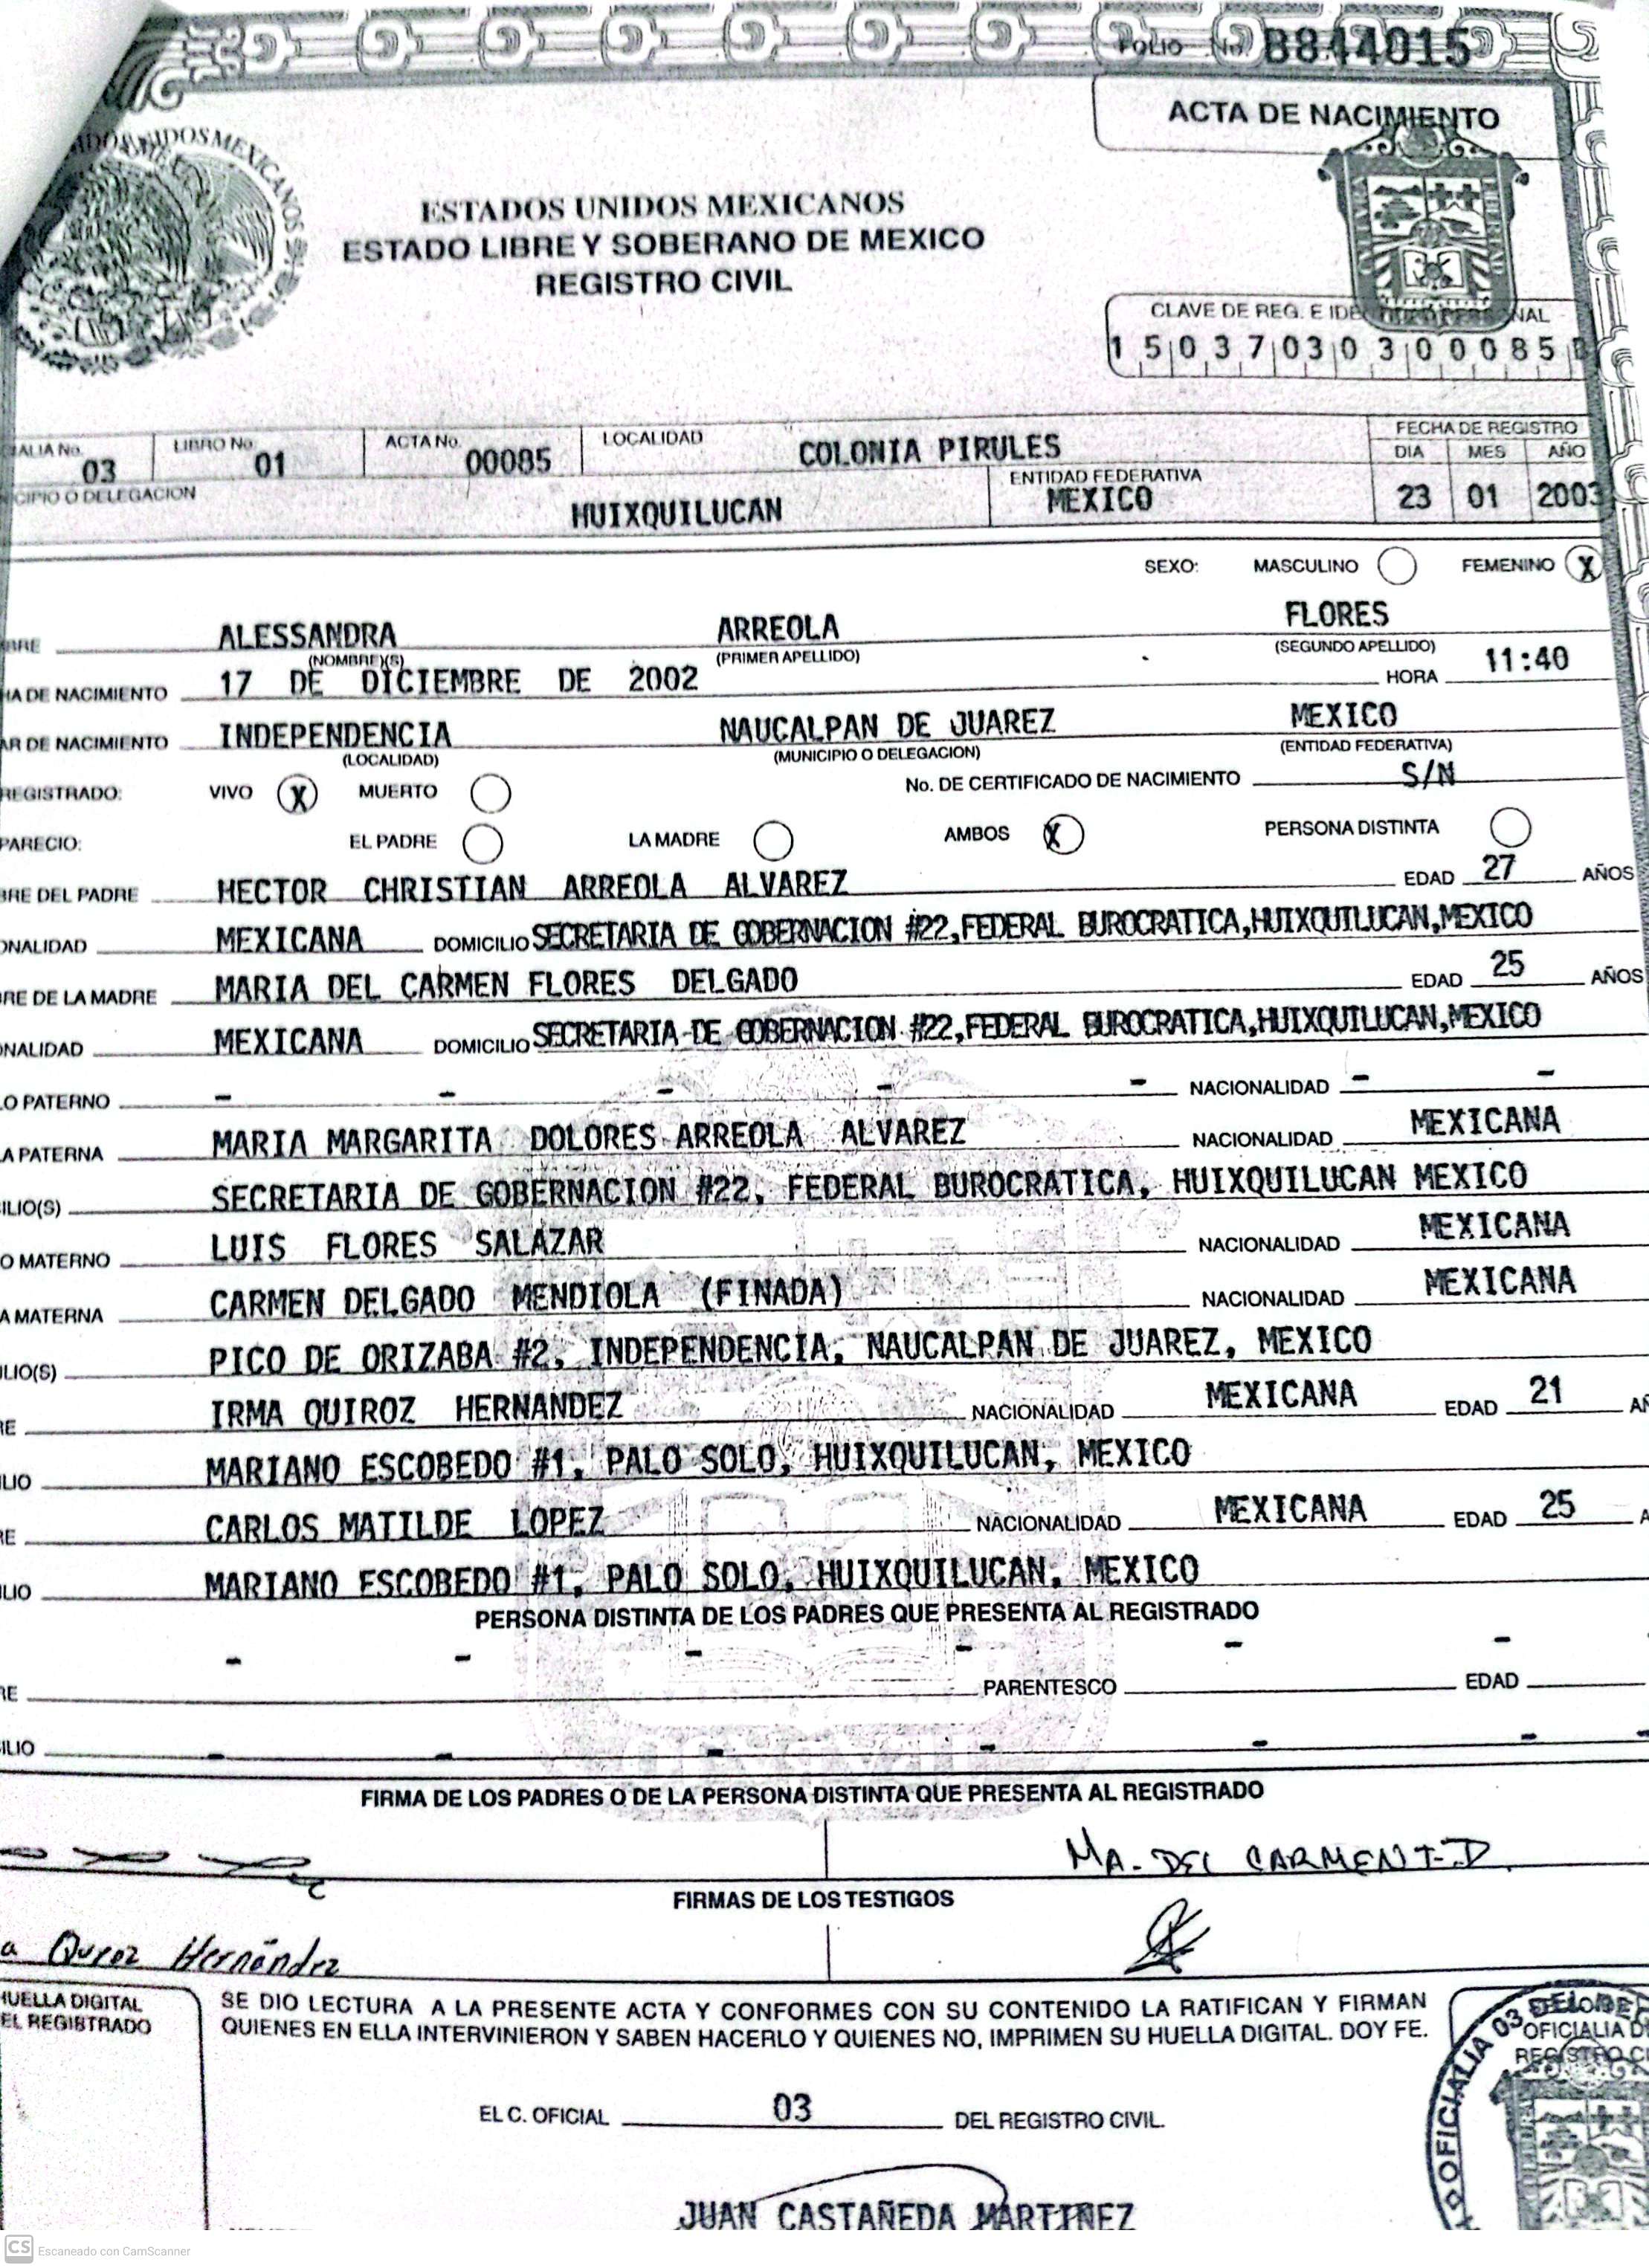 FOLIO No. B844015
ACTA DE NACIMIENTO
ESTADOS UNIDOS MEXICANOS
ESTADO LIBRE Y SOBERANO DE MEXICO
REGISTRO CIVIL
CLAVE DE REG. E IDE
15037030300085
ALIA No. 03 LIBRO No. 01 ACTA No. 00085 LOCALIDAD COLONIA PIRULES FECHA DE REGISTRO
DIA MES AÑO
CIPIO O DELEGACION HUIXQUILUCAN ENTIDAD FEDERATIVA MEXICO 23 01 2003
SEXO: MASCULINO FEMENINO X
BRE ALESSANDRA ARREOLA FLORES
(NOMBRE)(S) (PRIMER APELLIDO) (SEGUNDO APELLIDO)
HA DE NACIMIENTO 17 DE DICIEMBRE DE 2002 HORA 11:40
AR DE NACIMIENTO INDEPENDENCIA NAUCALPAN DE JUAREZ MEXICO
(LOCALIDAD) (MUNICIPIO O DELEGACION) (ENTIDAD FEDERATIVA)
REGISTRADO: VIVO X MUERTO No. DE CERTIFICADO DE NACIMIENTO S/N
PARECIO: EL PADRE LA MADRE AMBOS X PERSONA DISTINTA
BRE DEL PADRE HECTOR CHRISTIAN ARREOLA ALVAREZ EDAD 27 AÑOS
ONALIDAD MEXICANA DOMICILIO SECRETARIA DE GOBERNACION #22,FEDERAL BUROCRATICA,HUIXQUILUCAN,MEXICO
RE DE LA MADRE MARIA DEL CARMEN FLORES DELGADO EDAD 25 AÑOS
ONALIDAD MEXICANA DOMICILIO SECRETARIA DE GOBERNACION #22,FEDERAL BUROCRATICA,HUIXQUILUCAN,MEXICO
LO PATERNO - - - - - NACIONALIDAD - -
A PATERNA MARIA MARGARITA DOLORES ARREOLA ALVAREZ NACIONALIDAD MEXICANA
ILIO(S) SECRETARIA DE GOBERNACION #22, FEDERAL BUROCRATICA, HUIXQUILUCAN MEXICO
O MATERNO LUIS FLORES SALAZAR NACIONALIDAD MEXICANA
A MATERNA CARMEN DELGADO MENDIOLA (FINADA) NACIONALIDAD MEXICANA
ILIO(S) PICO DE ORIZABA #2, INDEPENDENCIA, NAUCALPAN DE JUAREZ, MEXICO
RE IRMA QUIROZ HERNANDEZ NACIONALIDAD MEXICANA EDAD 21 AÑ
ILIO MARIANO ESCOBEDO #1, PALO SOLO, HUIXQUILUCAN, MEXICO
RE CARLOS MATILDE LOPEZ NACIONALIDAD MEXICANA EDAD 25 A
ILIO MARIANO ESCOBEDO #1, PALO SOLO, HUIXQUILUCAN, MEXICO
PERSONA DISTINTA DE LOS PADRES QUE PRESENTA AL REGISTRADO
- - - - - -
RE PARENTESCO EDAD
ILIO - - - - - -
FIRMA DE LOS PADRES O DE LA PERSONA DISTINTA QUE PRESENTA AL REGISTRADO
MA. DEL CARMEN F. D.
FIRMAS DE LOS TESTIGOS
a Quroz Hernández
HUELLA DIGITAL
EL REGISTRADO
SE DIO LECTURA A LA PRESENTE ACTA Y CONFORMES CON SU CONTENIDO LA RATIFICAN Y FIRMAN
QUIENES EN ELLA INTERVINIERON Y SABEN HACERLO Y QUIENES NO, IMPRIMEN SU HUELLA DIGITAL. DOY FE.
OFICIALIA 03 DEL
OFICIALIA D
EL C. OFICIAL 03 DEL REGISTRO CIVIL.
JUAN CASTAÑEDA MARTINEZ
CS Escaneado con CamScanner